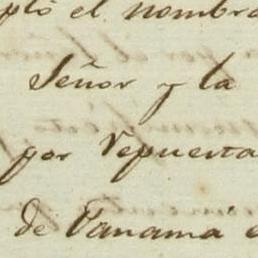 el nombra
Señor y la
por repuesta
de Panamá